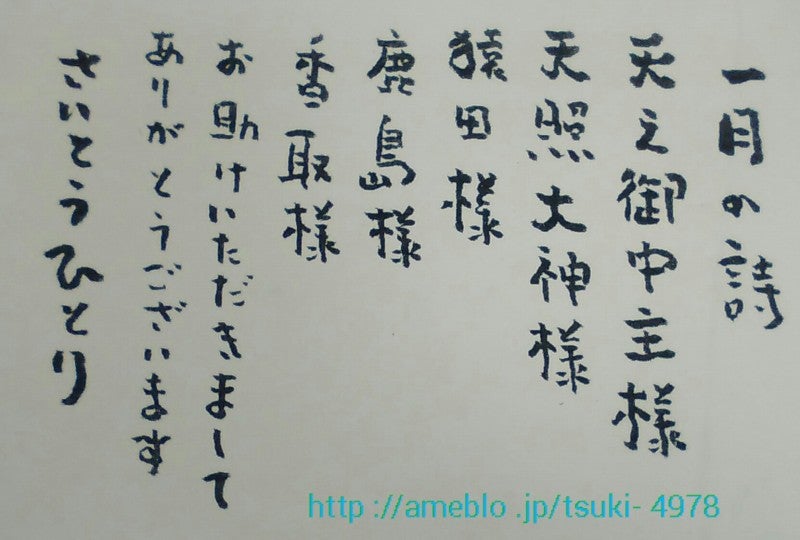 一月の詩
天之御中主様
天照大神様
猿田様
鹿島様
香取様
お助けいただきまして
ありがとうございます
さいとうひとり
http ://ameblo .jp/tsuki- 4978